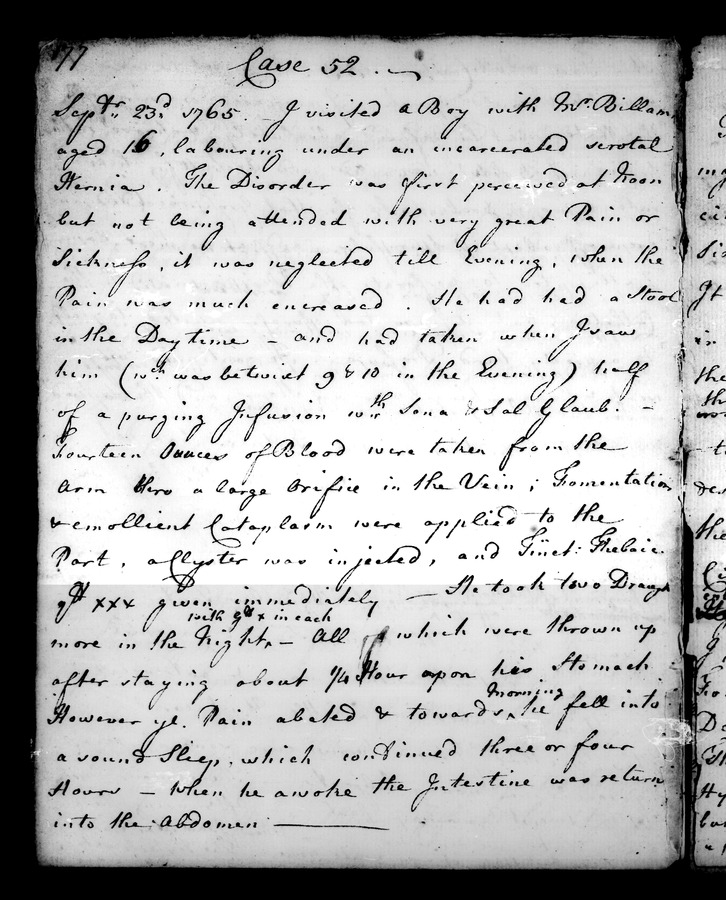 77
Case 52.
Septr. 23d. 1765. - I visited a Boy with Mr. Billam
aged 16, labouring under an incarcerated scrotal
Hernia. The Disorder was first perceived at Noon
but not being attended with very great Pain or
Sickness, it was neglected till Evening, when the
Pain was much encreased. He had had a Stool
in the Day time - and had taken when I saw
him (wch. was betwixt 9 & 10 in the Evening) half
of a purging Infusion wth Sena & Sal Glaub. -
Fourteen Ounces of Blood were taken from the
Arm thro a large Orifice in the Vein; Fomentation
& emollient Cataplasm were applied to the
Part, a Clyster was injected, and Tinct: Thebaic.
gtt xxx given immediately - He took two Draugh
with gtt x in each
more in the Night, - All which were thrown up
after staying about 1/4 Hour upon his Stomach
Morning
However ye. Pain abated & towards he fell into
a sound Sleep, which continued three or four
Hours - When he awoke the Intestine was return
into the Abdomen